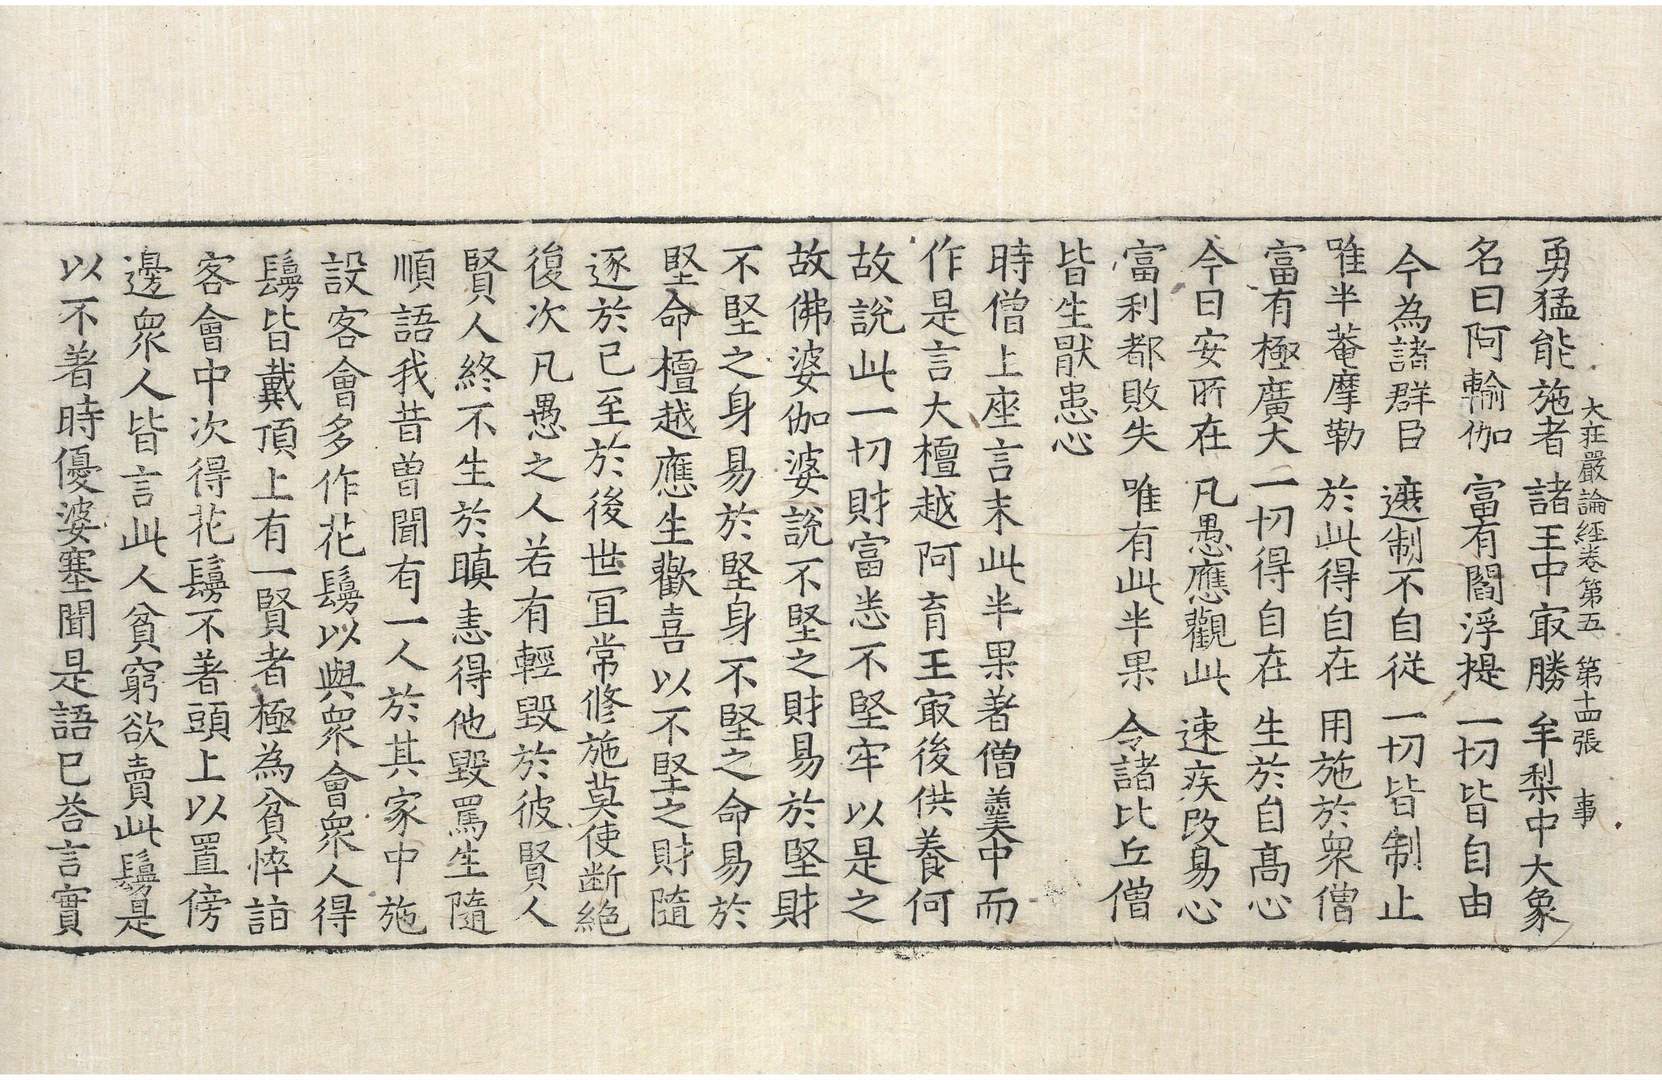 大莊嚴論經卷第五　第十四張　事
勇猛能施者　諸王中㝡勝　牟梨中大象
名曰阿輸伽　富有閻浮提　一切皆自由
今為諸群臣　遮制不自従　一切皆制止
唯半菴摩勒　於此得自在　用施於衆僧
富有極廣大　一切得自在　生於自高心
今日安所在　凡愚應觀此　速疾改易心
富利都敗失　唯有此半果　令諸比丘僧
皆生猒患心
時僧上座言末此半果著僧羹中而
作是言大檀越阿育王㝡後供養何
故說此一切財富悉不堅牢以是之
故佛婆伽婆說不堅之財易於堅財
不堅之身易於堅身不堅之命易於
堅命檀越應生歡喜以不堅之財隨
逐於己至於後世冝常修施莫使断絕
復次凡愚之人若有輕毀於彼賢人
賢人終不生於瞋恚得他毀罵生隨
順語我昔曾聞有一人於其家中施
設客會多作花鬘以與衆會衆人得
鬘皆戴頂上有一賢者極為貧悴詣
客會中次得花鬘不著頭上以置傍
邊衆人皆言此人貧窮欲賣此鬘是
以不著時優婆塞聞是語已荅言實